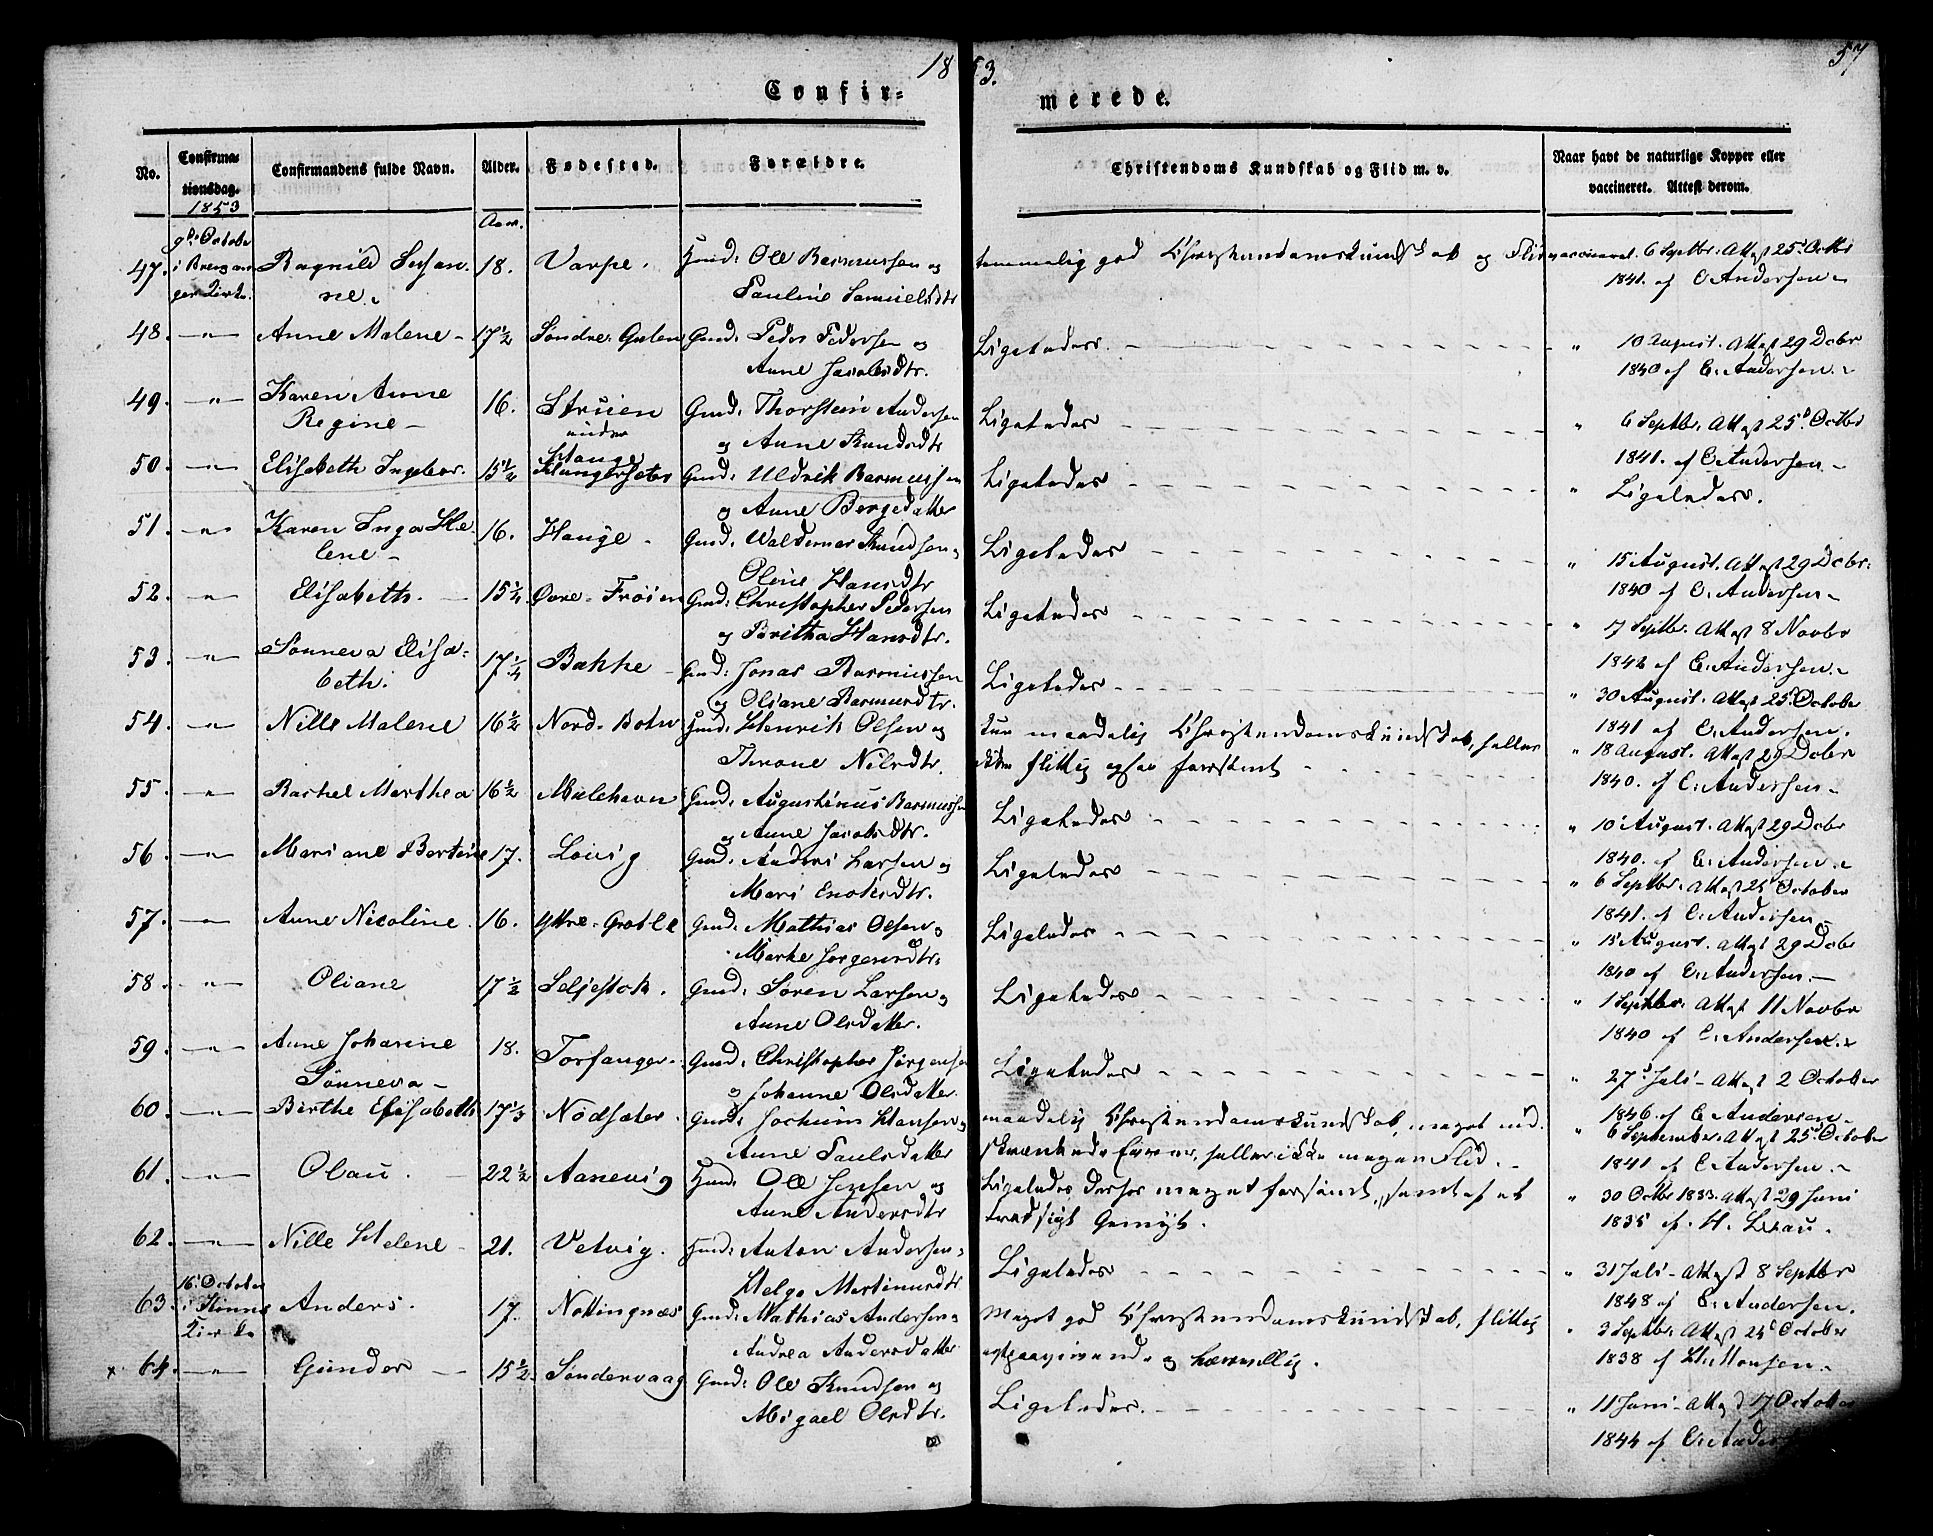 1853.
57
Confirmerede.
No.
Confirmationsdag.
1853
Confirmandens fulde Navn.
Alder.
Aar.
Fødested.
Forældre.
Christendoms Kundskab og Flid m. v.
Naar havt de naturlige Kopper eller
vaccineret. Attest derom.
9de Octobr
47. i Bremanger Kirke. Ragnild Susanne. 18. Varpe. Gmd: Ole Rasmussen og
Pauline Samuelsdtr
temmelig god Christendomskundskab og Flid vaccineret. 6 Septbr. Attest 25d Octbr
1841. af C Andersen
48. -"- Anne Malene 17½ Søndre Gulen Gmd: Peder Pedersen og
Anne Jacobsdtr.
Ligeledes. " 10 August. Attest 29 Dcbr
1840 af C. Andersen.
49. -"- Karen Anne
Regine 16. Struien
under
Hauge Gmd: Thorstein Andersen
og Anne Knudsdtr
Ligeledes " 6 Septbr. Attest 25d Octbr
1841. af C. Andersen
50. -"- Elisabeth Ingebor. 15½ Klungersæter Gmd: Uldrik Rasmussen
og Anne Børgedatter
Ligeledes " Ligeledes.
51. -"- Karen Inga Helene 16. Hauge Gmd: Waldemar Knudsen og
Oline Hansdtr
Ligeledes " 15 August. Attest 29 Dcbr.
1840 af C. Andersen
52. -"- Elisabeth. 15¼ Øvre Frøien Gmd: Christopher Pedersen
og Britha Hansdtr.
Ligeledes " 7 Septbr. Attest 8 Novbr
1842 af C. Andersen
53. -"- Sønneva Elisabeth. 17¼ Bakke Gmd: Jonas Rasmussen
og Oliane Rasmusdtr.
Ligeledes " 30 August. Attest 25d October
1841 af C. Andersen.
54. -"- Nille Malene 16½ Nord-Botn Gmd: Henrik Olsen og
Therone Nilsdtr.
Kun maadelig Christendomskundskab, heller
ikke flittig og
" 18 August. Attest 29 Dcbr
1840. af C. Andersen
55. -"- Rachel Marthea 16½ Mulehavn Gmd: Augustinus Rasmussen
og Anne Jacobsdtr.
Ligeledes " 10 August. Attest 29 Dcbr
1840. af C. Andersen.
56. -"- Mariane Bertine 17. Løivig Gmd: Anders Larsen og
Mari Enoksdtr.
Ligeledes " 6 Septbr. Attest 25 October
1841. af C. Andersen
57. -"- Anne Nicoline. 16. Yttre-Grotle Gmd: Mathias Olsen og
Marte Jørgensdtr.
Ligeledes " 15 August. Attest 29 Dcbr
1840 af C. Andersen.
58. -"- Oliane 17½ Seljestok. Gmd: Søren Larsen og
Anne Olsdatter.
Ligeledes " 1 Septbr. Attest 11 Novbr
1840 af C. Andersen.
59. -"- Anne Johanne
Sønneva 18. Torfanger. Gmd: Christopher Jørgensen
og Johanne Olsdatter.
Ligeledes " 27d Juli Attest 2 October
1846. af C. Andersen
60. -"- Birthe Elisabeth 17⅓ Nødsæter. Gmd: Jochum Hansen og
Anne Paulsdatter
maadelig Christendomskundskab, meget indskrænkede Evner, heller ikke megen Flid.
" 6 September. Attest 25d October
1841 af C. Andersen.
61. -"- Olau. 22½ Aanevig Gmd: Ole Jensen og
Anne Andersdtr
Ligeledes, derfor meget forsømt, samt af et
trodsigt Gemyt.
" 30 Octbr 1833. Attest 29 Juni
1835 af H.
62. -"- Nille Helene 21. Vetvig. Gmd: Anton Andersen og
Helge Martinusdtr
Ligeledes " 31 Juli Attest 8 Septbr
1848 af C. Andersen.
16 October
63. i Kinns Kirke Anders. 17. Nottingnæs Gmd: Mathias Andersen og
Andrea Andersdatter
Meget god Christendomskundskab, flittig
opgaagivende og .
" 3 Septbr. Attest 25d October
1838 af Monsen.
x 64. -"- Gunder 15½ Søndervaag Gmd: Ole Knudsen og
Abigael Olsdtr.
Ligeledes. " 11 Juni Attest 17 October
1844 af C. Anders